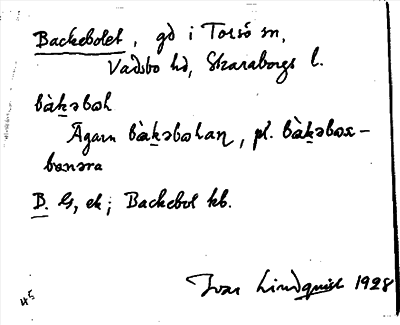 Backebolet, gd i Torsö sn,
Vadsbo hd, Skaraborgs l.
bàḵəboɫ
Ägarn bàḵəboɫaɳ, pl. bàḵəboɫ-
bənəra
B. G, ek; Backebol kb.
Ivar Lindquist 1928